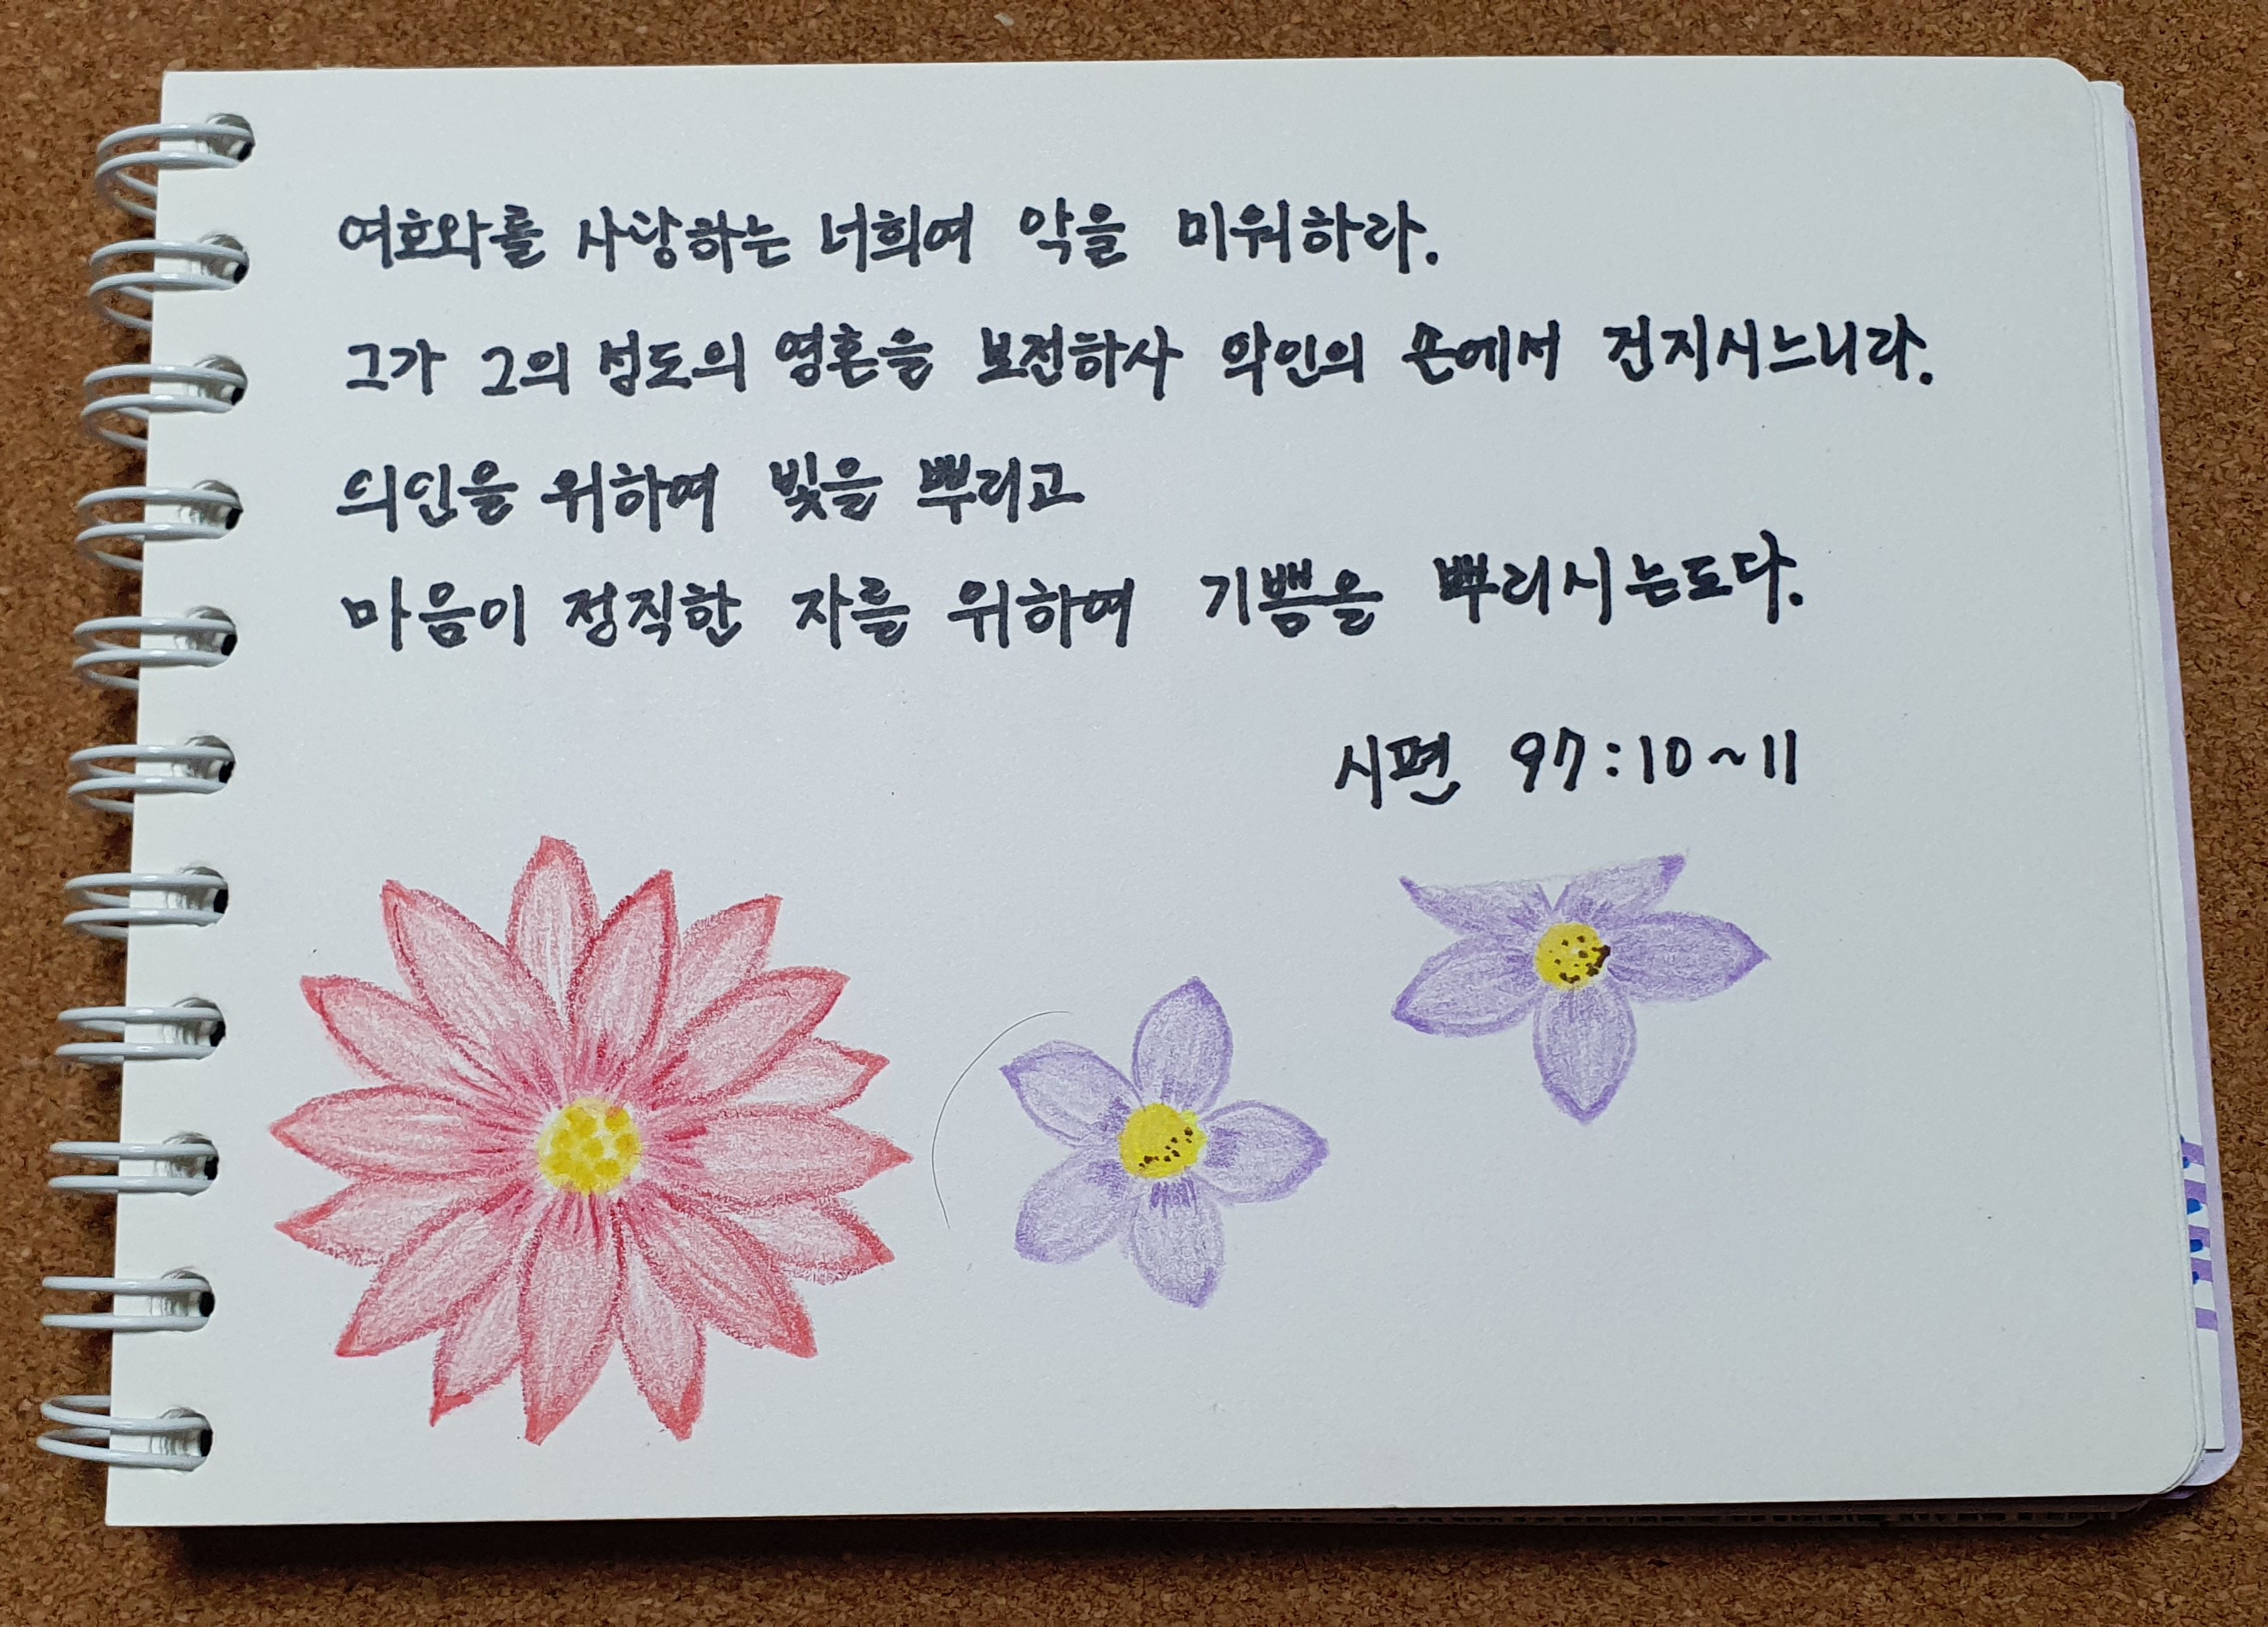 여호와를 사랑하는 너희여 악을 미워하라.
그가 그의 성도의 영혼을 보전하사 악인의 손에서 건지시느니라.
의인을 위하여 빛을 뿌리고
마음이 정직한 자를 위하여 기쁨을 뿌리시는도다.
시편 97:10~11